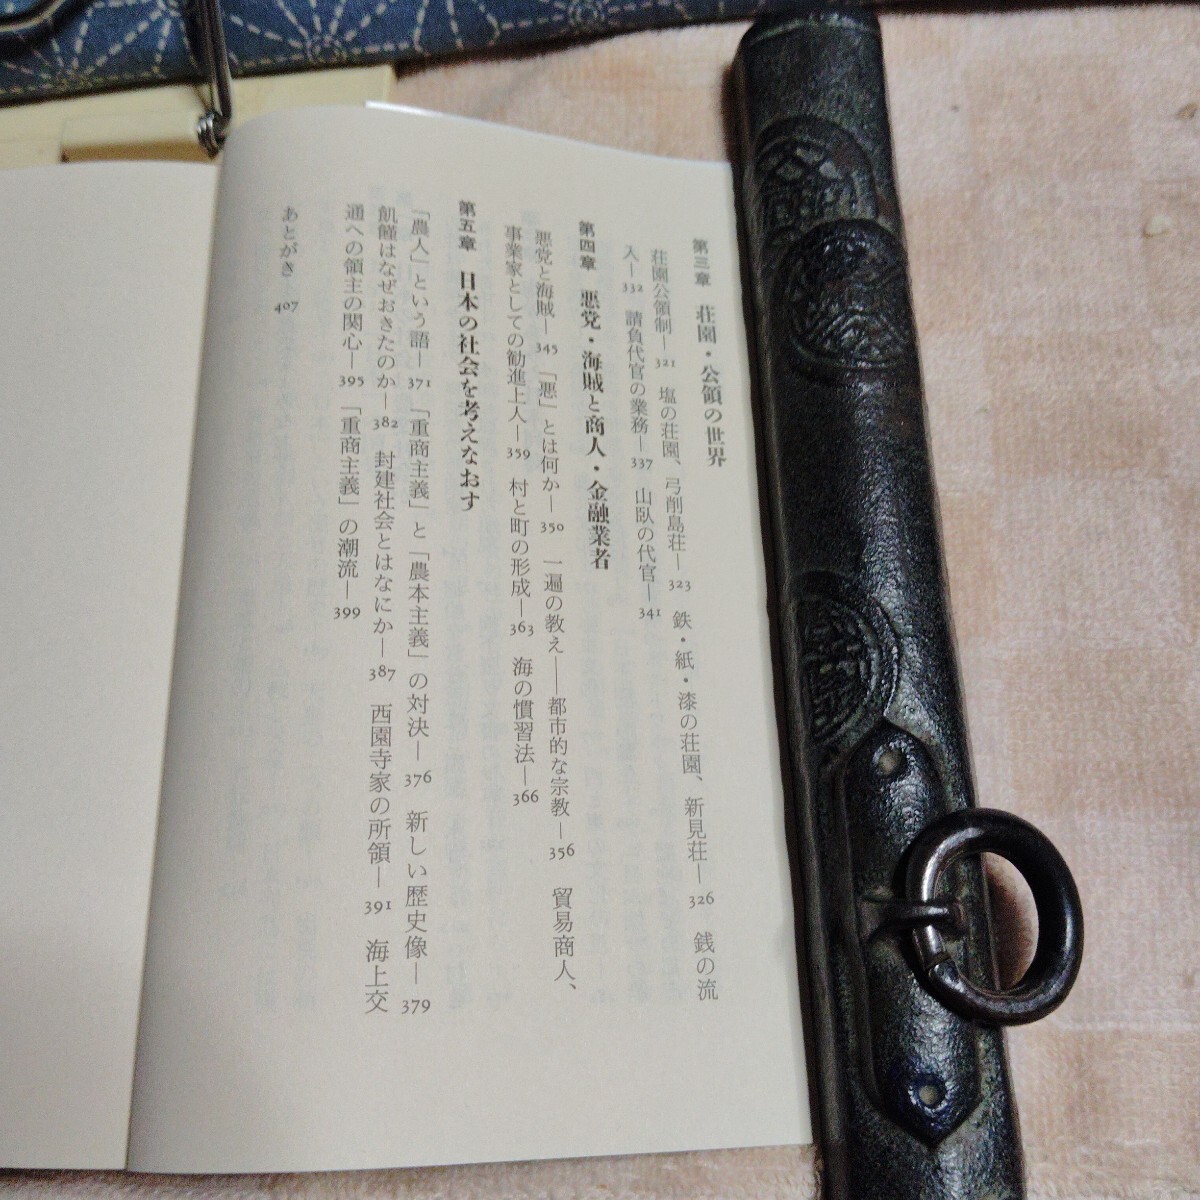 第三章　荘園・公領の世界
荘園公領制―321　塩の荘園、弓削島荘―323　鉄・紙・漆の荘園、新見荘―326　銭の流
入―332　請負代官の業務―337　山臥の代官―341
第四章　悪党・海賊と商人・金融業者
悪党と海賊―345　「悪」とは何か―350　一遍の教え――都市的な宗教―356　貿易商人、
事業家としての勧進上人―359　村と町の形成―363　海の慣習法―366
第五章　日本の社会を考えなおす
「農人」という語―371　「重商主義」と「農本主義」の対決―376　新しい歴史像―379
飢饉はなぜおきたのか―382　封建社会とはなにか―387　西園寺家の所領―391　海上交
通への領主の関心―395　「重商主義」の潮流―399
あとがき　407